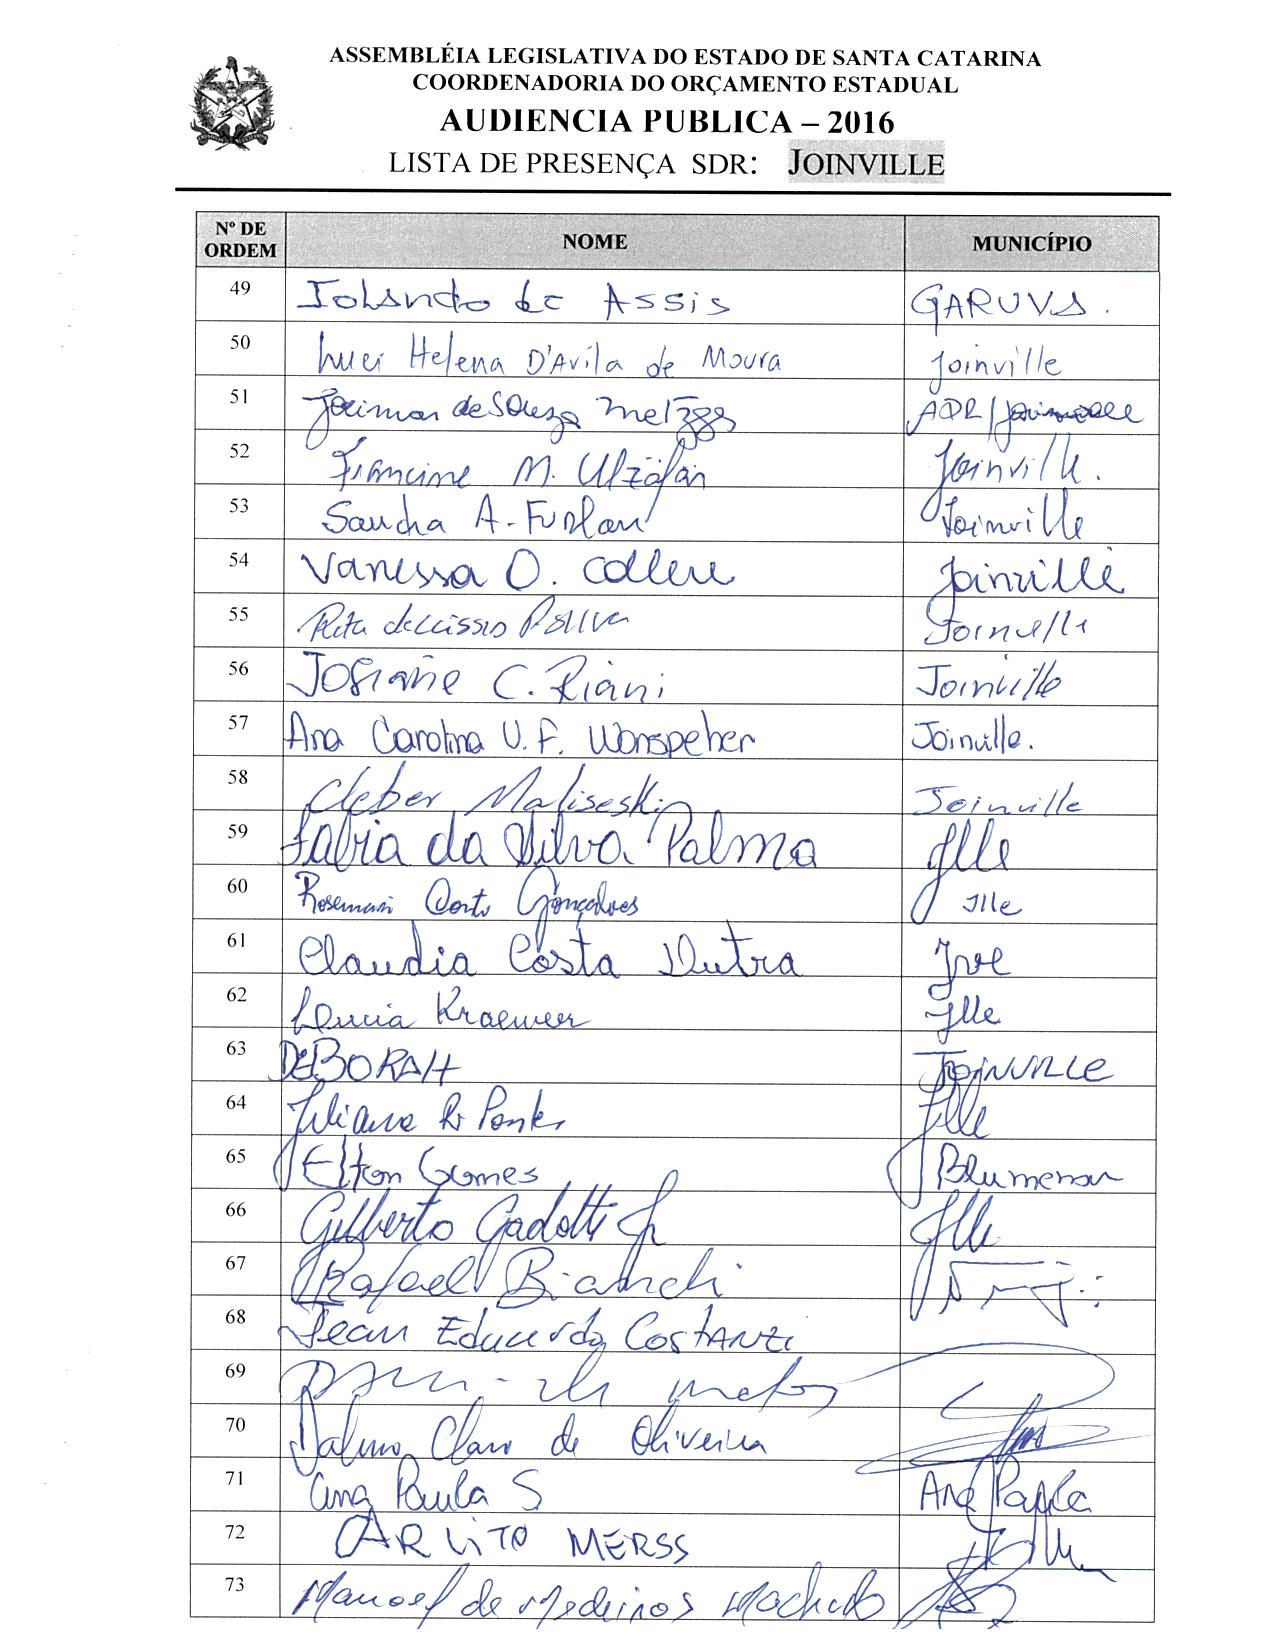 ASSEMBLÉIA LEGISLATIVA DO ESTADO DE SANTA CATARINA
COORDENADORIA DO ORÇAMENTO ESTADUAL
AUDIENCIA PUBLICA – 2016
LISTA DE PRESENÇA SDR: JOINVILLE
Nº DE ORDEM NOME MUNICÍPIO
49 Iolando de Assis GARUVA.
50 Luci Helena D'Avila de Moura Joinville
51 de Souza ADR/Joinville
52 Francine M. Joinville.
53 Sandra A. Furlan Joinville
54 Vanessa O. Joinville
55 Rita Joinville
56 Josiane C. Riani Joinville
57 Ana Carolina V. F. Wonspeher Joinville.
58 Cleber Maliseski Joinville
59 Fabia da Silva Palma Jlle
60 Rosemari Gonçalves Jlle
61 Claudia Costa Dutra Jve
62 Jlle
63 DEBORAH JOINVILLE
64 Juliana Jlle
65 Elton Gomes Blumenau
66 Gilberto Gadotti Jr Jlle
67 Rafael Bianchi
68 Jean Eduardo Costanzi
69
70 Dalmo Claro de Oliveira
71 Ana Paula S Ana Paula
72 CARLITO MERSS
73 Manoel de Medeiros Machado